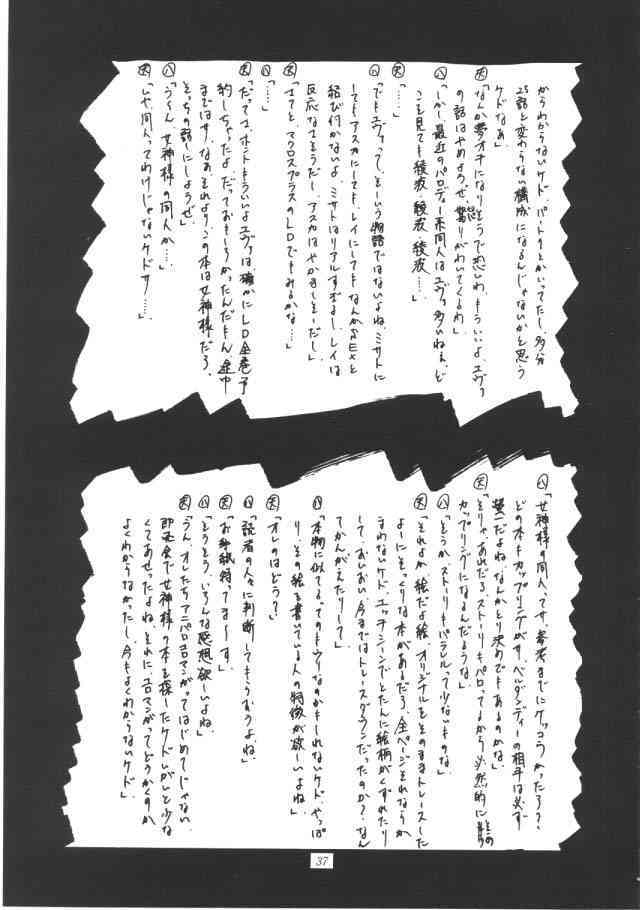 からわからないケド、パート2とかいってたし、多分
25話と変わらない構成になるんじゃないかと思う
ケドなぁ」
「なんか夢オチになりそうで恐いわ、もういいよ、エヴァ
の話はやめようぜ、怒りがわいてくるわ」
「しかし最近のパロディー系同人はエヴァ多いねぇ、ど
こを見ても綾波、綾波、綾波……」
「……」
「でもエヴァって、そーいう物語ではないよね、ミサトに
してもアスカにしても、レイにしてもなんかSEXと
結び付かないよ、ミサトはリアルすぎるし、レイは
反応なさそうだし、アスカはやかましそーだし」
「さてと、マクロスプラスのLDでもみるかな…」
「……」
「だってさ、ホントもういいよエヴァは、確かにLD全巻予
約しちゃったよ、だっておもしろかったんだもん、途中
まではサ、なぁ、それよりこの本は女神様だろ、
そっちの話にしようぜ」
「うーん、女神様の同人か…」
「いや、同人ってわけじゃないケドサ……」
「女神様の同人ってサ、参考までにケッコうかったろ？、
どの本もカップリングがサ、ベルダンディーの相手は必ず
螢一だよね、なんかとり決めでもあるのかな」
「そりゃあれだろ、ストーリもパロってるから必然的にその
カップリングになるんだろうな」
「そうか、ストーリもパラレルって少ないものな」
「それよか絵だよ絵、オリジナルをそのままトレースした
よーにそっくりな本があるだろ、全ページそれならか
まわないケド、エッチシーンでとたんに絵柄がくずれたり
して、おいおい、今まではトレースダウンだったのか？、なん
てかんがえたりして」
「本物に似てるってのもウリなのかもしれないケド、やっぱ
り、その絵を書いている人の特徴が欲しいよね」
「オレのはどう？」
「読者の人々に判断してもらおうよね」
「お手紙待ってまーす」
「そうそう、いろんな感想欲しいよね」
「うん、オレたちアニパロエロマンガってはじめてじゃない、
即売会で女神様の本を探したケドいがいと少な
くてあせったよね、それにエロマンガってどうかくのか
よくわからなかったし、今もよくわからないケド」
37